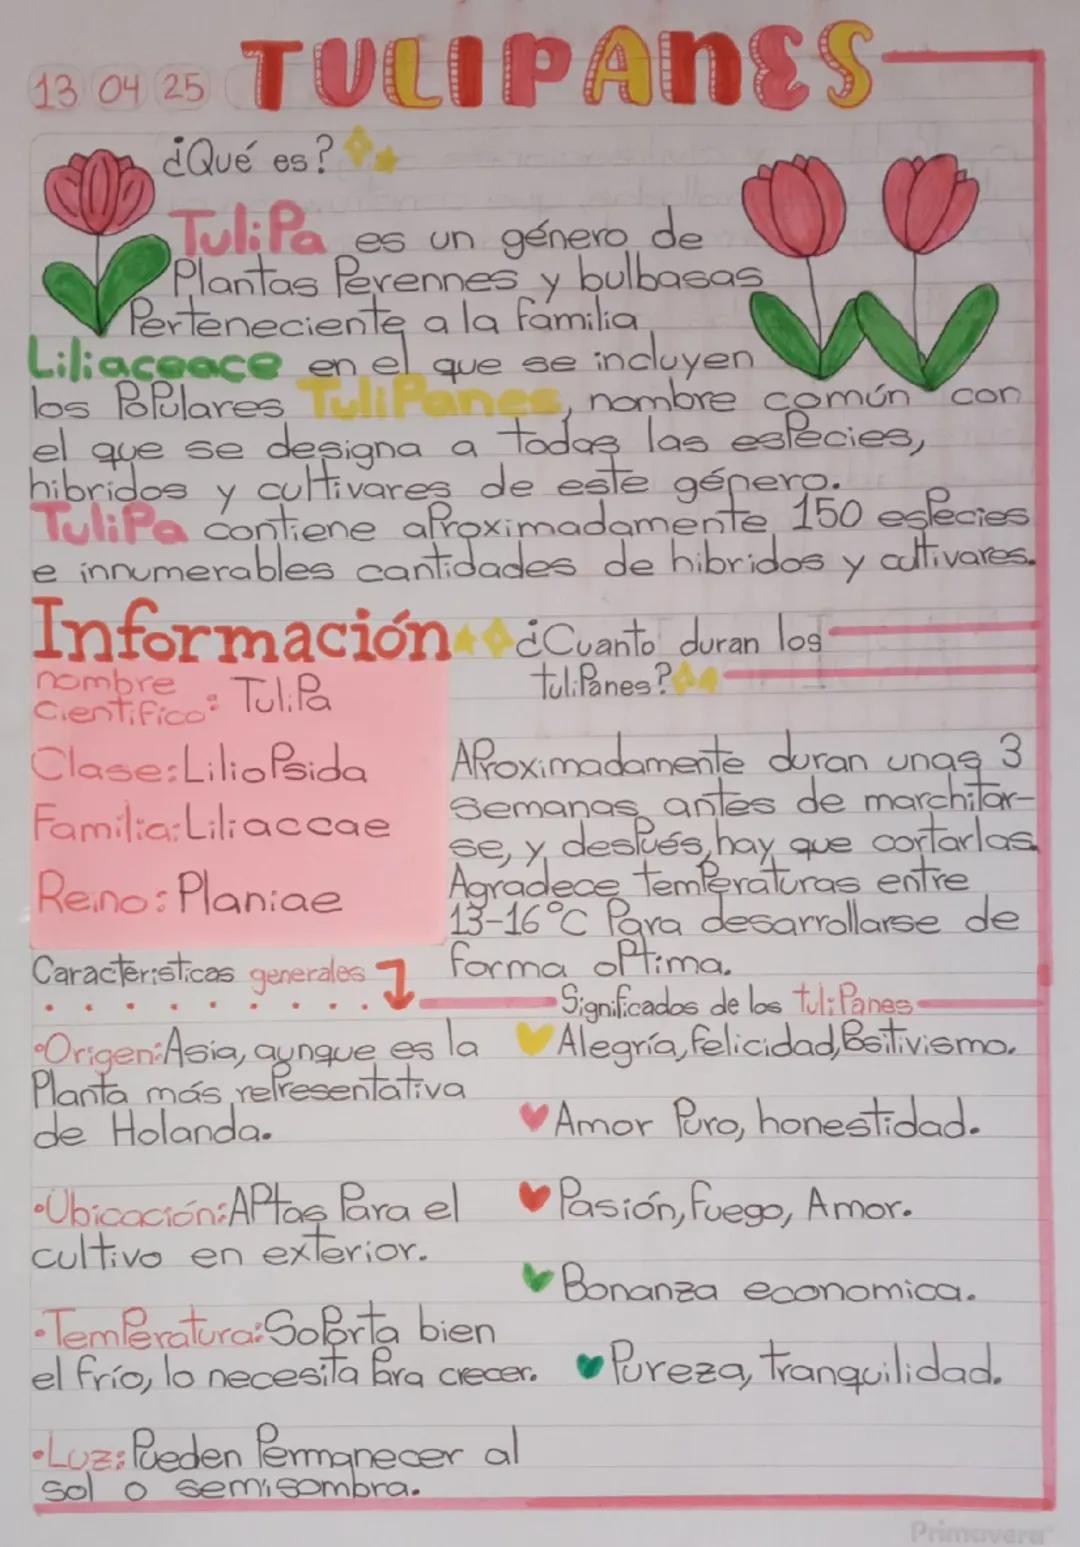 TULIPANES
13 04 25
¿Qué es?
TuliPa es un género de
Plantas Perennes y bulbasas
Perteneciente a la familia
Liliaceace en el que se incluyen
los PoPulares TuliPanes, nombre común con
el que se designa a todas las esPecies,
hibridos y cultivares de este género.
TuliPa contiene aProximadamente 150 esPecies
e innumerables cantidades de hibridos y cultivares.
Información
nombre
Cientifico: TuliPa
Clase: LilioPsida
Familia: Liliaccae
Reino: Planiae
¿Cuanto duran los
tuliPanes?
AProximadamente duran unas 3
semanas antes de marchitar-
se, y desPués, hay que cortarlas
Agradece temPeraturas entre
13-16°C Para desarrollarse de
forma oPtima.
Caracteristicas generales
•Origen: Asia, aunque es la
Planta más rePresentativa
de Holanda.
•Ubicación: APtas Para el
cultivo en exterior.
•TemPeratura: SoPorta bien
el frío, lo necesita Para crecer.
•Luz: Pueden Permanecer al
sol o semisombra.
Significados de los tuliPanes
Alegría, felicidad, Positivismo.
Amor Puro, honestidad.
Pasión, fuego, Amor.
Bonanza economica.
Pureza, tranquilidad.
Primavera